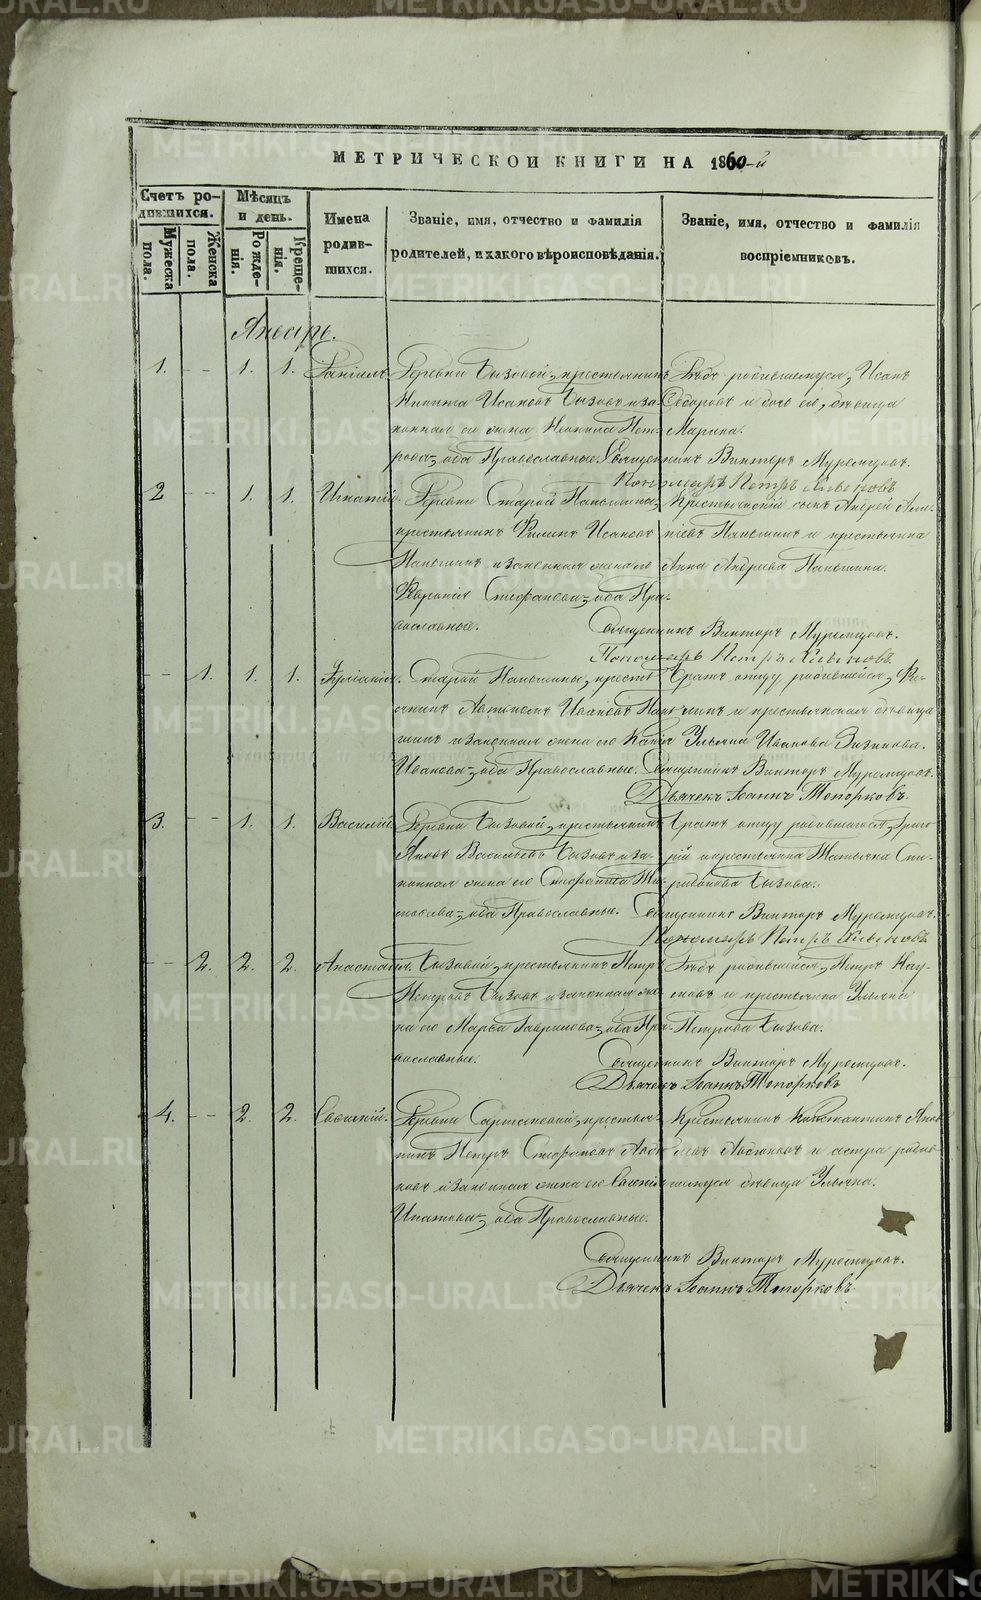 МЕТРИЧЕСКОЙ КНИГИ НА 1860-й
Счетъ родившихся.
Мужеска пола.
Женска пола.
Мѣсяцъ и день.
Рожденія.
Крещенія.
Имена родившихся.
Званіе, имя, отчество и фамилія родителей, и какого вѣроисповѣданія.
Званіе, имя, отчество и фамилія воспріемниковъ.
Январь.
1. -- 1. 1. Даніилъ. Деревни Бызовой, крестьянинъ
Никита Исаковъ Бызовъ и за-
конная его жена Неонила Пет-
рова, оба Православные.
Дѣдъ родившемуся, Исакъ
Сидоровъ и дочь его, дѣвица
Марина.
Священникъ Викторъ Муромцовъ.
Пономарь Петръ
2 -- 1. 1. Игнатій. Деревни Старой Паньшины,
крестьянинъ Филипъ Исаковъ
Паньшинъ и законная жена его
Стефанова, оба Пра-
вославные.
Крестьянскій сынъ Андрей
Паньшинъ и крестьянка
Анна Андреева Паньшина.
Священникъ Викторъ Муромцовъ.
Пономарь Петръ
-- 1. 1. 1. Старой Паньшины, кресть-
янинъ Ивановъ Пань-
шинъ и законная жена его
Иванова, оба Православные.
Братъ отцу родившейся,
и крестьянская дѣвица
Ульяна Иванова
Священникъ Викторъ Муромцовъ.
Дьячекъ Іоаннъ Топорковъ.
3. -- 1. 1. Василій. Деревни Бызовой, крестьянинъ
Яковъ Васильевъ Бызовъ и за-
конная жена его Стефанида
оба Православные.
Братъ отцу родившагося, Григо-
рій и крестьянка Татьяна Спи-
ридонова Бызова.
Священникъ Викторъ Муромцовъ.
Пономарь Петръ
-- 2. 2. 2. Анастасія. Бызовой, крестьянинъ Петръ
Петровъ Бызовъ и законная же-
на его Марья Гаврилова, оба Пра-
вославные.
Дѣдъ родившейся, Петръ Нау-
мовъ и крестьянка Ульяна
Петрова Бызова.
Священникъ Викторъ Муромцовъ.
Дьячекъ Іоаннъ Топорковъ
4. -- 2. 2. Евгеній. Деревни крестья-
нинъ Петръ Стефановъ
и законная жена его
оба Православные.
Крестьянинъ Константинъ Яков-
левъ и сестра родив-
шемуся дѣвица Ульяна.
Священникъ Викторъ Муромцовъ.
Дьячекъ Іоаннъ Топорковъ.
METRIKI.GASO-URAL.RU